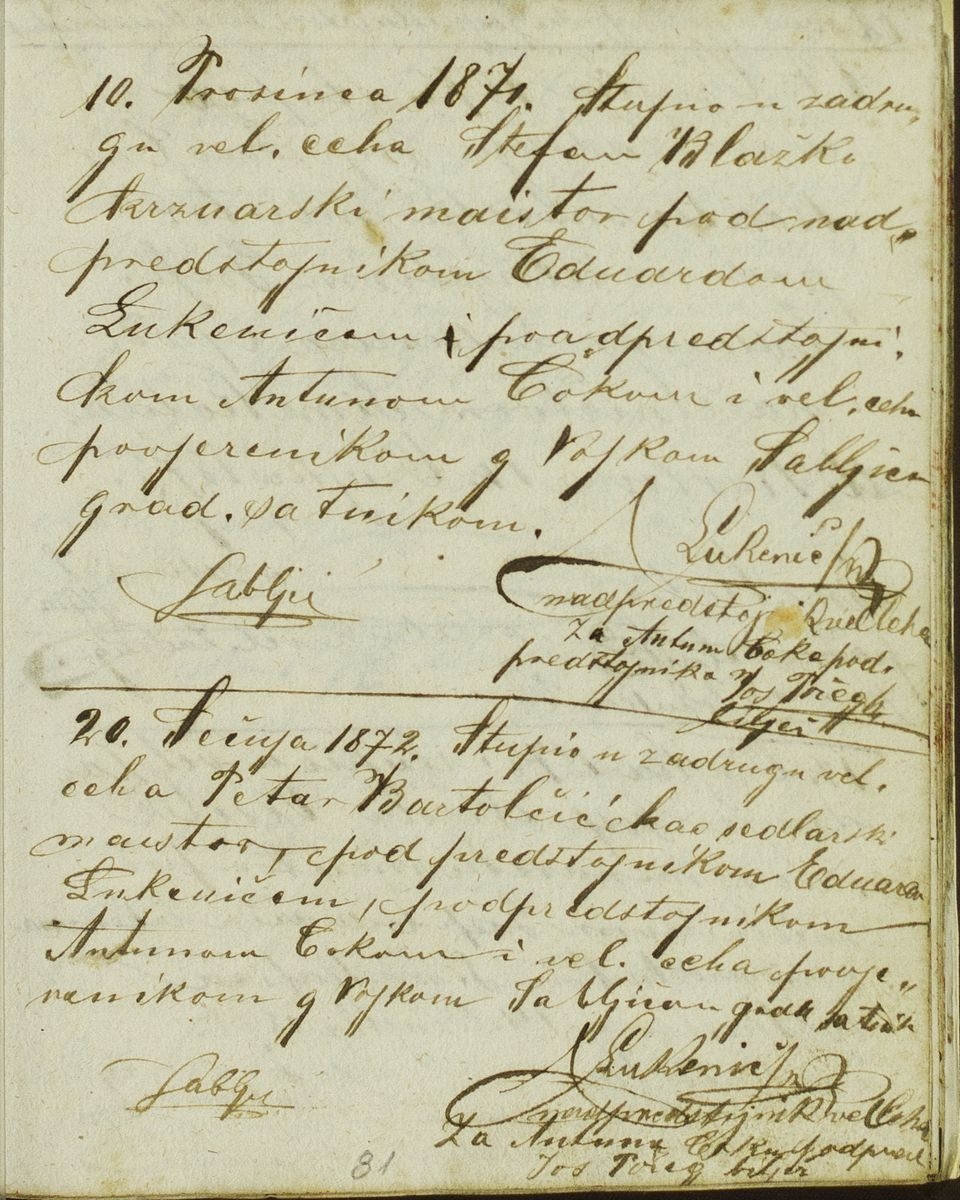 10. Prosinca 1871. Stupio u zadru„
gu vel. ceha Stefan Blažki
krznarski maistor pod nad„
predstojnikom Eduardom
Lukeničem i podpredstojni„
kom Antunom Cokom i vel. ceha
povjerenikom g Vojkom Sabljiem
grad. satnikom.
Lukenič
Sabljić
nadpredstoj vel Ceha
Za Antuna Coka pod„
predstojnika
20. Sečnja 1872. Stupio u zadrugu vel.
ceha Petar Bartolčić kao sedlarski
maistor, pod predstojnikom Eduardom
Lukeničem, podpredstojnikom
Antunom Cokom i vel. ceha povje„
renikom g Vojkom Sabljićem grads satnik
Lukenič
Sabljić
nadpredstojnik vel Ceha
Za Antuna Coka podpred
Jos
81